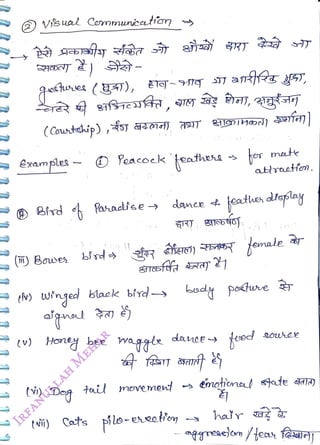 ② Visual Communication →
→ ऐसे प्रकाशीय संकेत जो आँखों द्वारा देखे जा
सकता है। जैसे -
gestures (मुद्रा), हाव-भाव या शारीरिक मुद्रा,
चेहरे की अभिव्यक्ति, बाल खड़े होना, अनुरंजन
(Courtship), रंग बदलना, तथा आक्रामकता दर्शाना।
Examples - ① Peacock feathers → for mate
attraction.
(ii) Bird of Paradise → dance & feather display
द्वारा आकर्षण
(iii) Bower bird → सुंदर घोंसला सजाकर female को
आकर्षित करता है।
(iv) Winged black bird → body posture से
signal देता है।
(v) Honey bee waggle dance → food source
की दिशा बताती है।
(vi) Dog tail movement → emotional state बताता
है।
(vii) Cat's pilo-erection → hair खड़े के
aggression/fear दिखाना।
IRFANULLAH MEHAR